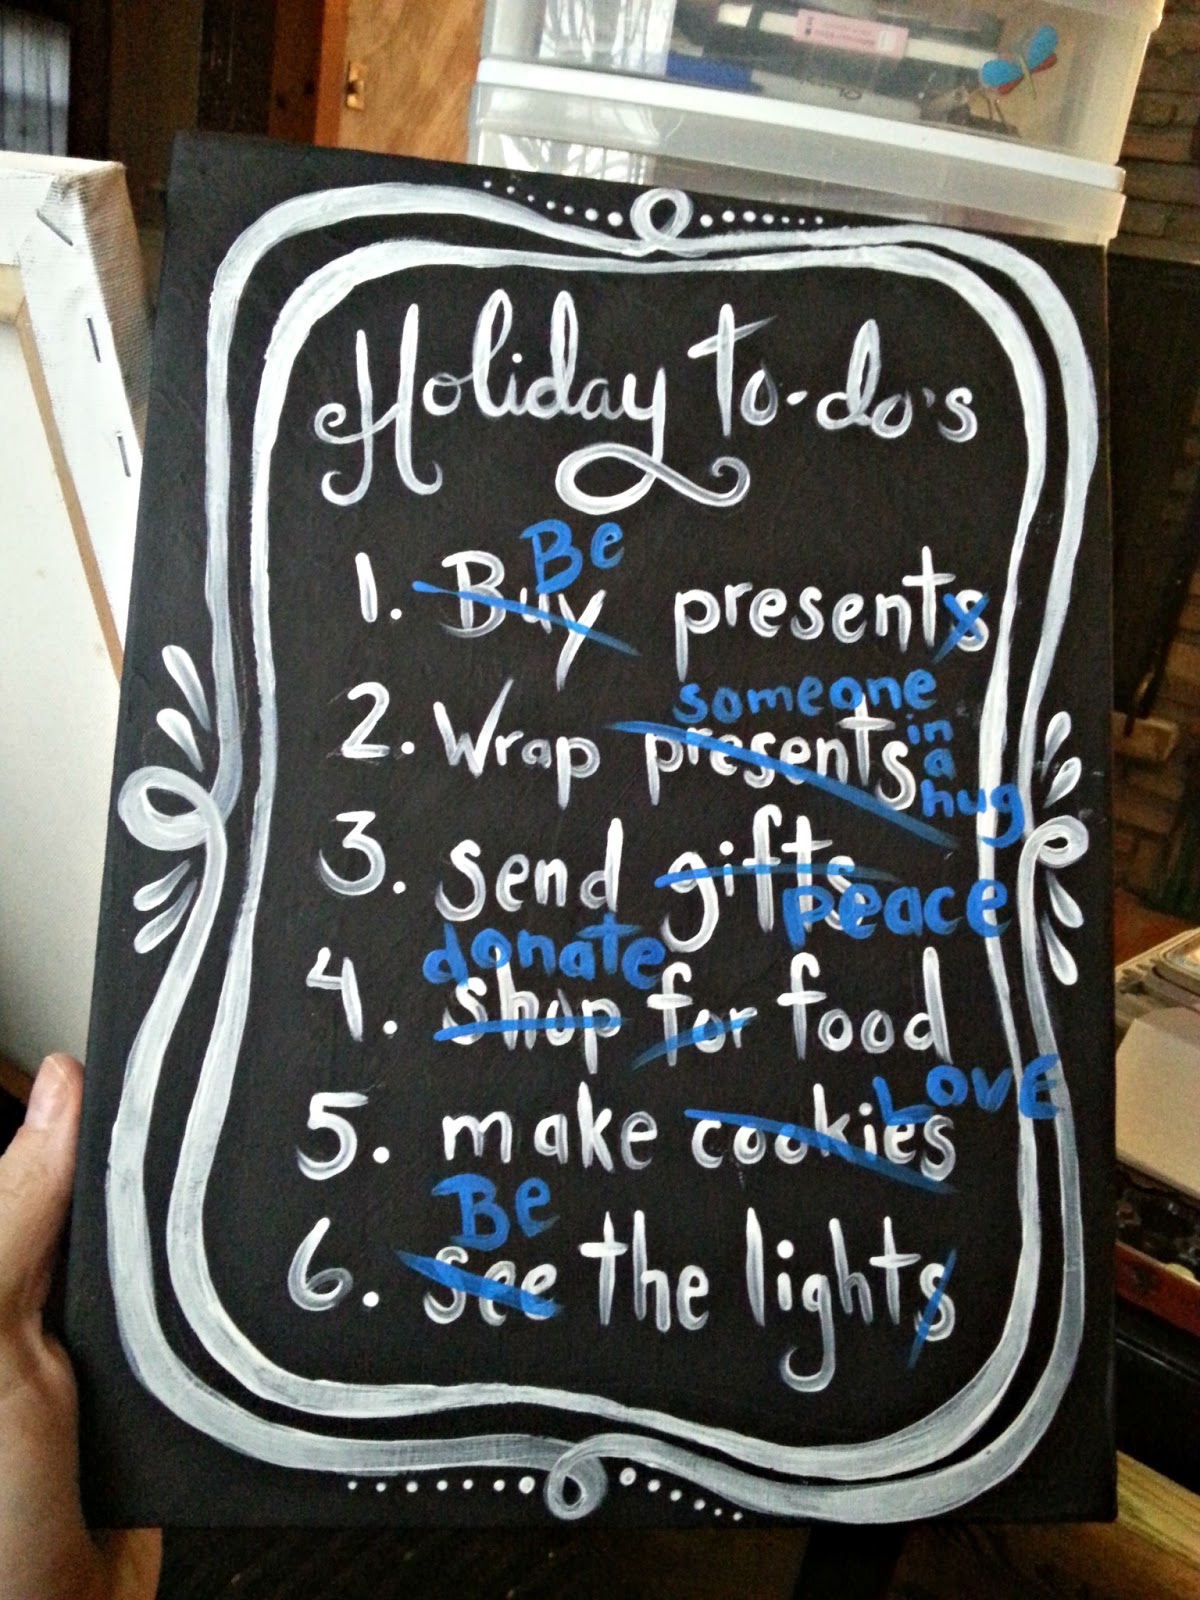 Holiday to-do's
Be
1. Buy presents
someone
2. Wrap presents in a hug
3. send gifts
peace
donate
4. shop for food
LOVE
5. make cookies
Be
6. see the lights